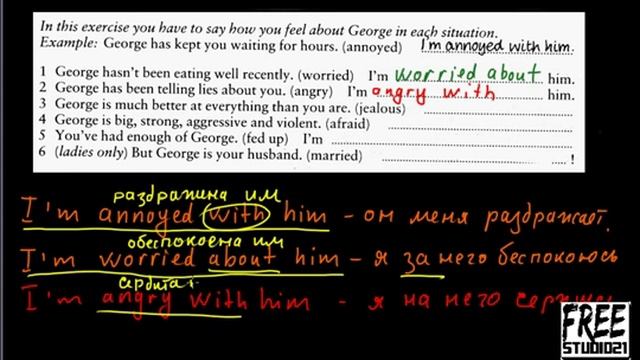 In this exercise you have to say how you feel about George in each situation.
Example: George has kept you waiting for hours. (annoyed) I'm annoyed with him.
1 George hasn't been eating well recently. (worried) I'm worried about him.
2 George has been telling lies about you. (angry) I'm angry with him.
3 George is much better at everything than you are. (jealous)
4 George is big, strong, aggressive and violent. (afraid)
5 You've had enough of George. (fed up) I'm
6 (ladies only) But George is your husband. (married) !
раздражена им
I'm annoyed with him - он меня раздражает.
обеспокоена им
I'm worried about him - я за него беспокоюсь
сердита
I'm angry with him - я на него
FREE
STUDIO21